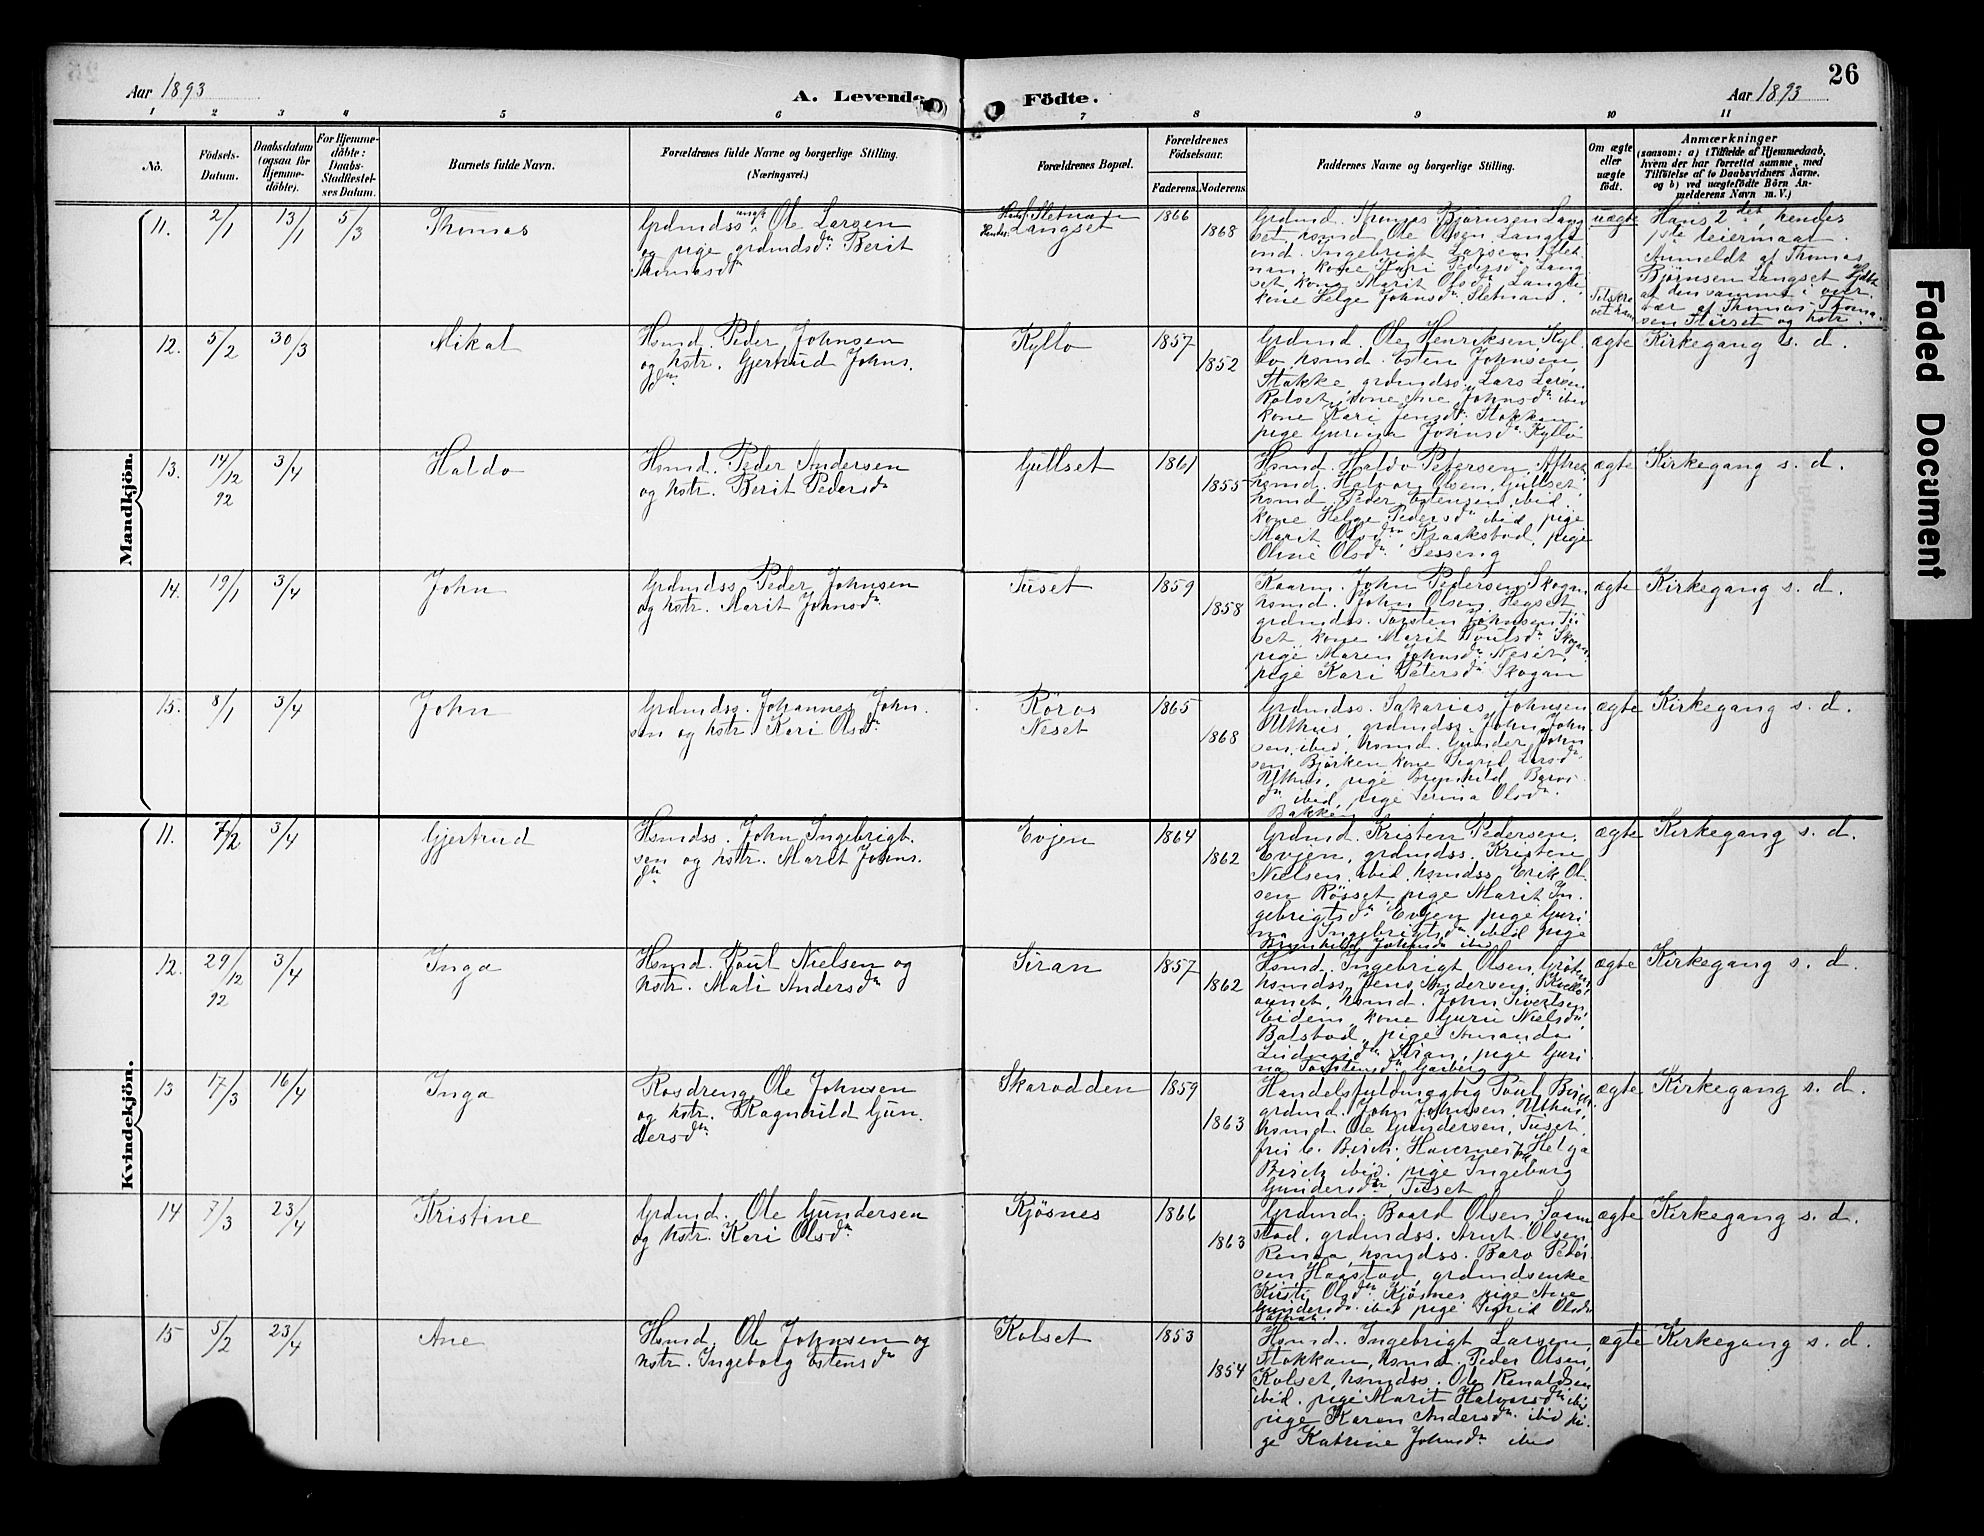 26
Aar 1893
A. Levende
Födte.
Aar 1893
1 2 3 4 5 6 7 8 9 10 11
No.
Födsels-
Datum.
Daabsdatum
(ogsaa for
Hjemme-
döbte).
For Hjemme-
döbte:
Daabs-
Stadfæstel-
ses Datum.
Barnets fulde Navn.
Forældrenes fulde Navne og borgerlige Stilling.
(Næringsvei.)
Forældrenes Bopæl.
Forældrenes
Födselsaar.
Faderens.
Moderens.
Faddernes Navne og borgerlige Stilling.
Om ægte
eller
uægte
födt.
Anmærkninger
(saasom: a) i Tilfælde af Hjemmedaab,
hvem der har forrettet samme, med
Tilföielse af to Daabsvidners Navne.
og b) ved uægtefödte Börn An-
melderens Navn m. V.)
Mandkjön.
11. 2/1 13/1 5/3 Thomas
Grdmdss. ungk. Ole Larsen
og pige grdmdsdr. Berit
Thomasdr
Sletnan
Hendes: Langset
1866
1868
Grdmd. Thomas Bjørnsen Lang
set, hsmd Ole Olsen Langle
Ingebrigt Larsen Slet-
nan, kone Kari Pedersdr Lang
set, kone Marit Olsdr Langle
kone Helge Johnsdr. Sletnan.
uægte
Hans 2det, hendes
1ste leiermaal.
Anmeldt af Thomas
Bjørnsen Langset Hjdbt
af den samme i over
vær af Thomas Thoma-
sen Tuset og hstr.
12. 5/2 30/3 Mikal
Hsmd. Peder Johnsen
og hstr. Gjertrud Johns.
dr
Kyllo
1857
1852
Grdmd. Ole Henriksen Kyl-
lo, hsmd. Esten Johnsen
Stokke, grdmdss. Lars Larsen
Rolset, kone Ane Johnsdr ibid
kone Kari Jensdr. Stokkan
pige Gurina Johnsdr. Kyllo
ægte
Kirkegang s. d.
13. 14/12 92 3/4 Haldo
Hsmd. Peder Andersen
og hstr. Berit Pedersdr
Gullset
1861
1855
Hsmd. Haldo Petersen, Aftret
hsmd. Halvor Olsen, Gullset,
hsmd. Peder Estensen ibid
kone Helge Pedersdr ibid, pige
Marit Olsdr Kraakstad, pige
Oline Olsdr. Sesseng
ægte
Kirkegang s. d.
14. 19/1 3/4 John
Grdmdss. Peder Johnsen
og hstr. Marit Johnsdr.
Tuset
1859
1858
Kaarm. John Pedersen Skogan
hsmd. John Olsen Hegset
grdmdss. Torsten Johnsen Tu
set, kone Marit Poulsdr Skogan
pige Maren Johnsdr. Neset,
pige Kari Petersdr Skogan
ægte
Kirkegang s. d.
15. 8/1 3/4 John
Grdmdss. Johannes John.
sen og hstr Kari Olsdr.
Röros
Neset
1865
1868
Grdmdss. Sakarias Johnsen
Uthus, grdmdss. John John
sen ibid, hsmd. Gunder John
sen Bjørken kone Sigrid Larsdr
Uthus, pige Brynhild Baros-
dr ibid, pige Serina Olsdr.
Bakken
ægte
Kirkegang s. d.
Kvindekjön.
11. 7/2 3/4 Gjertrud
Hsmdss. John Ingebrigt.
sen og hstr. Marit Johns.
dr
Evjen
1864
1862
Grdmd. Kristen Pedersen
Evjen, grdmdss. Kristen
Nielsen ibid, hsmdss. Erik Ol-
sen Røsset pige Marit In-
gebrigtsdr Evjen pige Guri-
na Ingebrigtsdr ibid pige
Brynhild Johnsdr ibid
ægte
Kirkegang s. d.
12. 29/12 92 3/4 Inga
Hsmd. Poul Nielsen og
hstr. Mali Andersdr
Siran
1857
1862
Hsmd. Ingebrigt Olsen,
hsmdss. Jens Andersen,
hsmd. John Sivertsen
Eidem, kone Guru Nielsdr.
Balstad, pige Amanda
Ludvigsdr Siran, pige Guri
na Torstensdr Garberg
ægte
Kirkegang s. d.
13 17/3 16/4 Inga
Rosdreng Ole Johnsen
og hstr. Ragnhild Gun-
dersdr.
Skarodden
1859
1863
Handelsfuldmægtig Poul Birch
grdmd. John Johnsen, Uthus,
hsmd. Ole Gundersen, Tuset,
fru C. Birch, Havernes, frk Helga
Birch ibid, pige Ingeborg
Gundersdr. Tuset
ægte
Kirkegang s. d.
14 7/3 23/4 Kristine
Grdmd. Ole Gundersen
og hstr. Kari Olsdr
Kjøsnes
1866
1863
Grdmd. Baard Olsen Saam
stad, grdmdss. Arnt Olsen
Renaa, hsmdss. Baro Peder
sen Haastad, grdmdsenke
Kirsti Olsdr. Kjøsnes pige Ane
Gundersdr. ibid pige Sigrid Olsdr
ægte
Kirkegang s. d.
15 5/2 23/4 Ane
Hsmd. Ole Johnsen og
hstr. Ingeborg Estensdr
Kolset
1853
1854
Hsmd. Ingebrigt Larsen,
Stokkan, hsmd. Peder Olsen,
Kolset hsmdss. Ole Renaldsen
ibid. pige Marit Halvorsdr ibid
pige Karen Andersdr. ibid pi-
ge Katrine Johnsdr ibid
ægte
Kirkegang s. d.
Faded Document